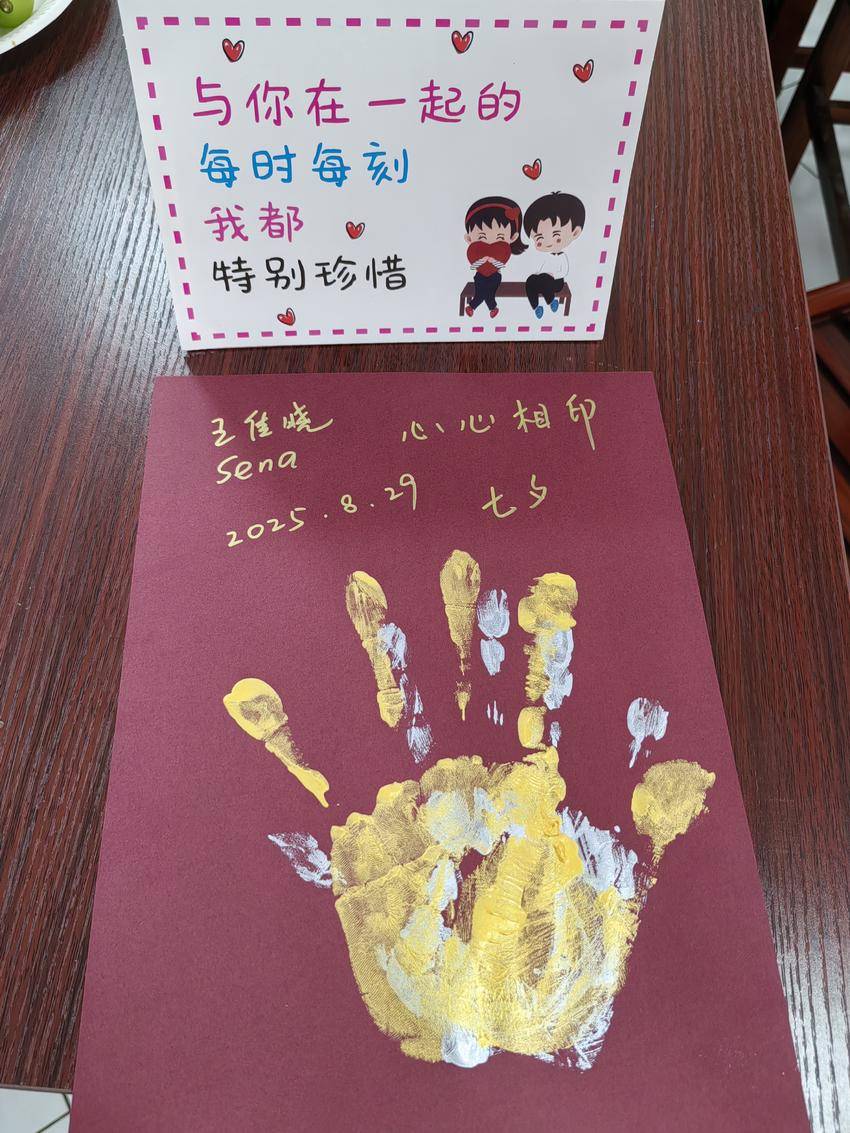 与你在一起的
每时每刻
我都
特别珍惜
王佳晓 心心相印
Sena
2025.8.29 七夕